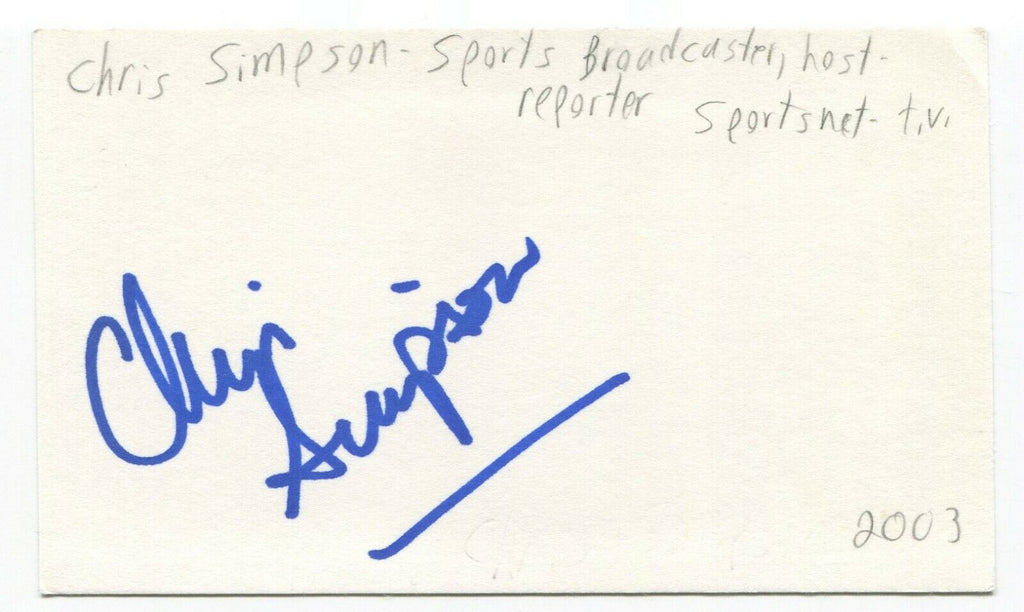 Chris Simpson - Sports Broadcaster, host -
reporter Sportsnet - t.v.
Chris
Simpson
2003